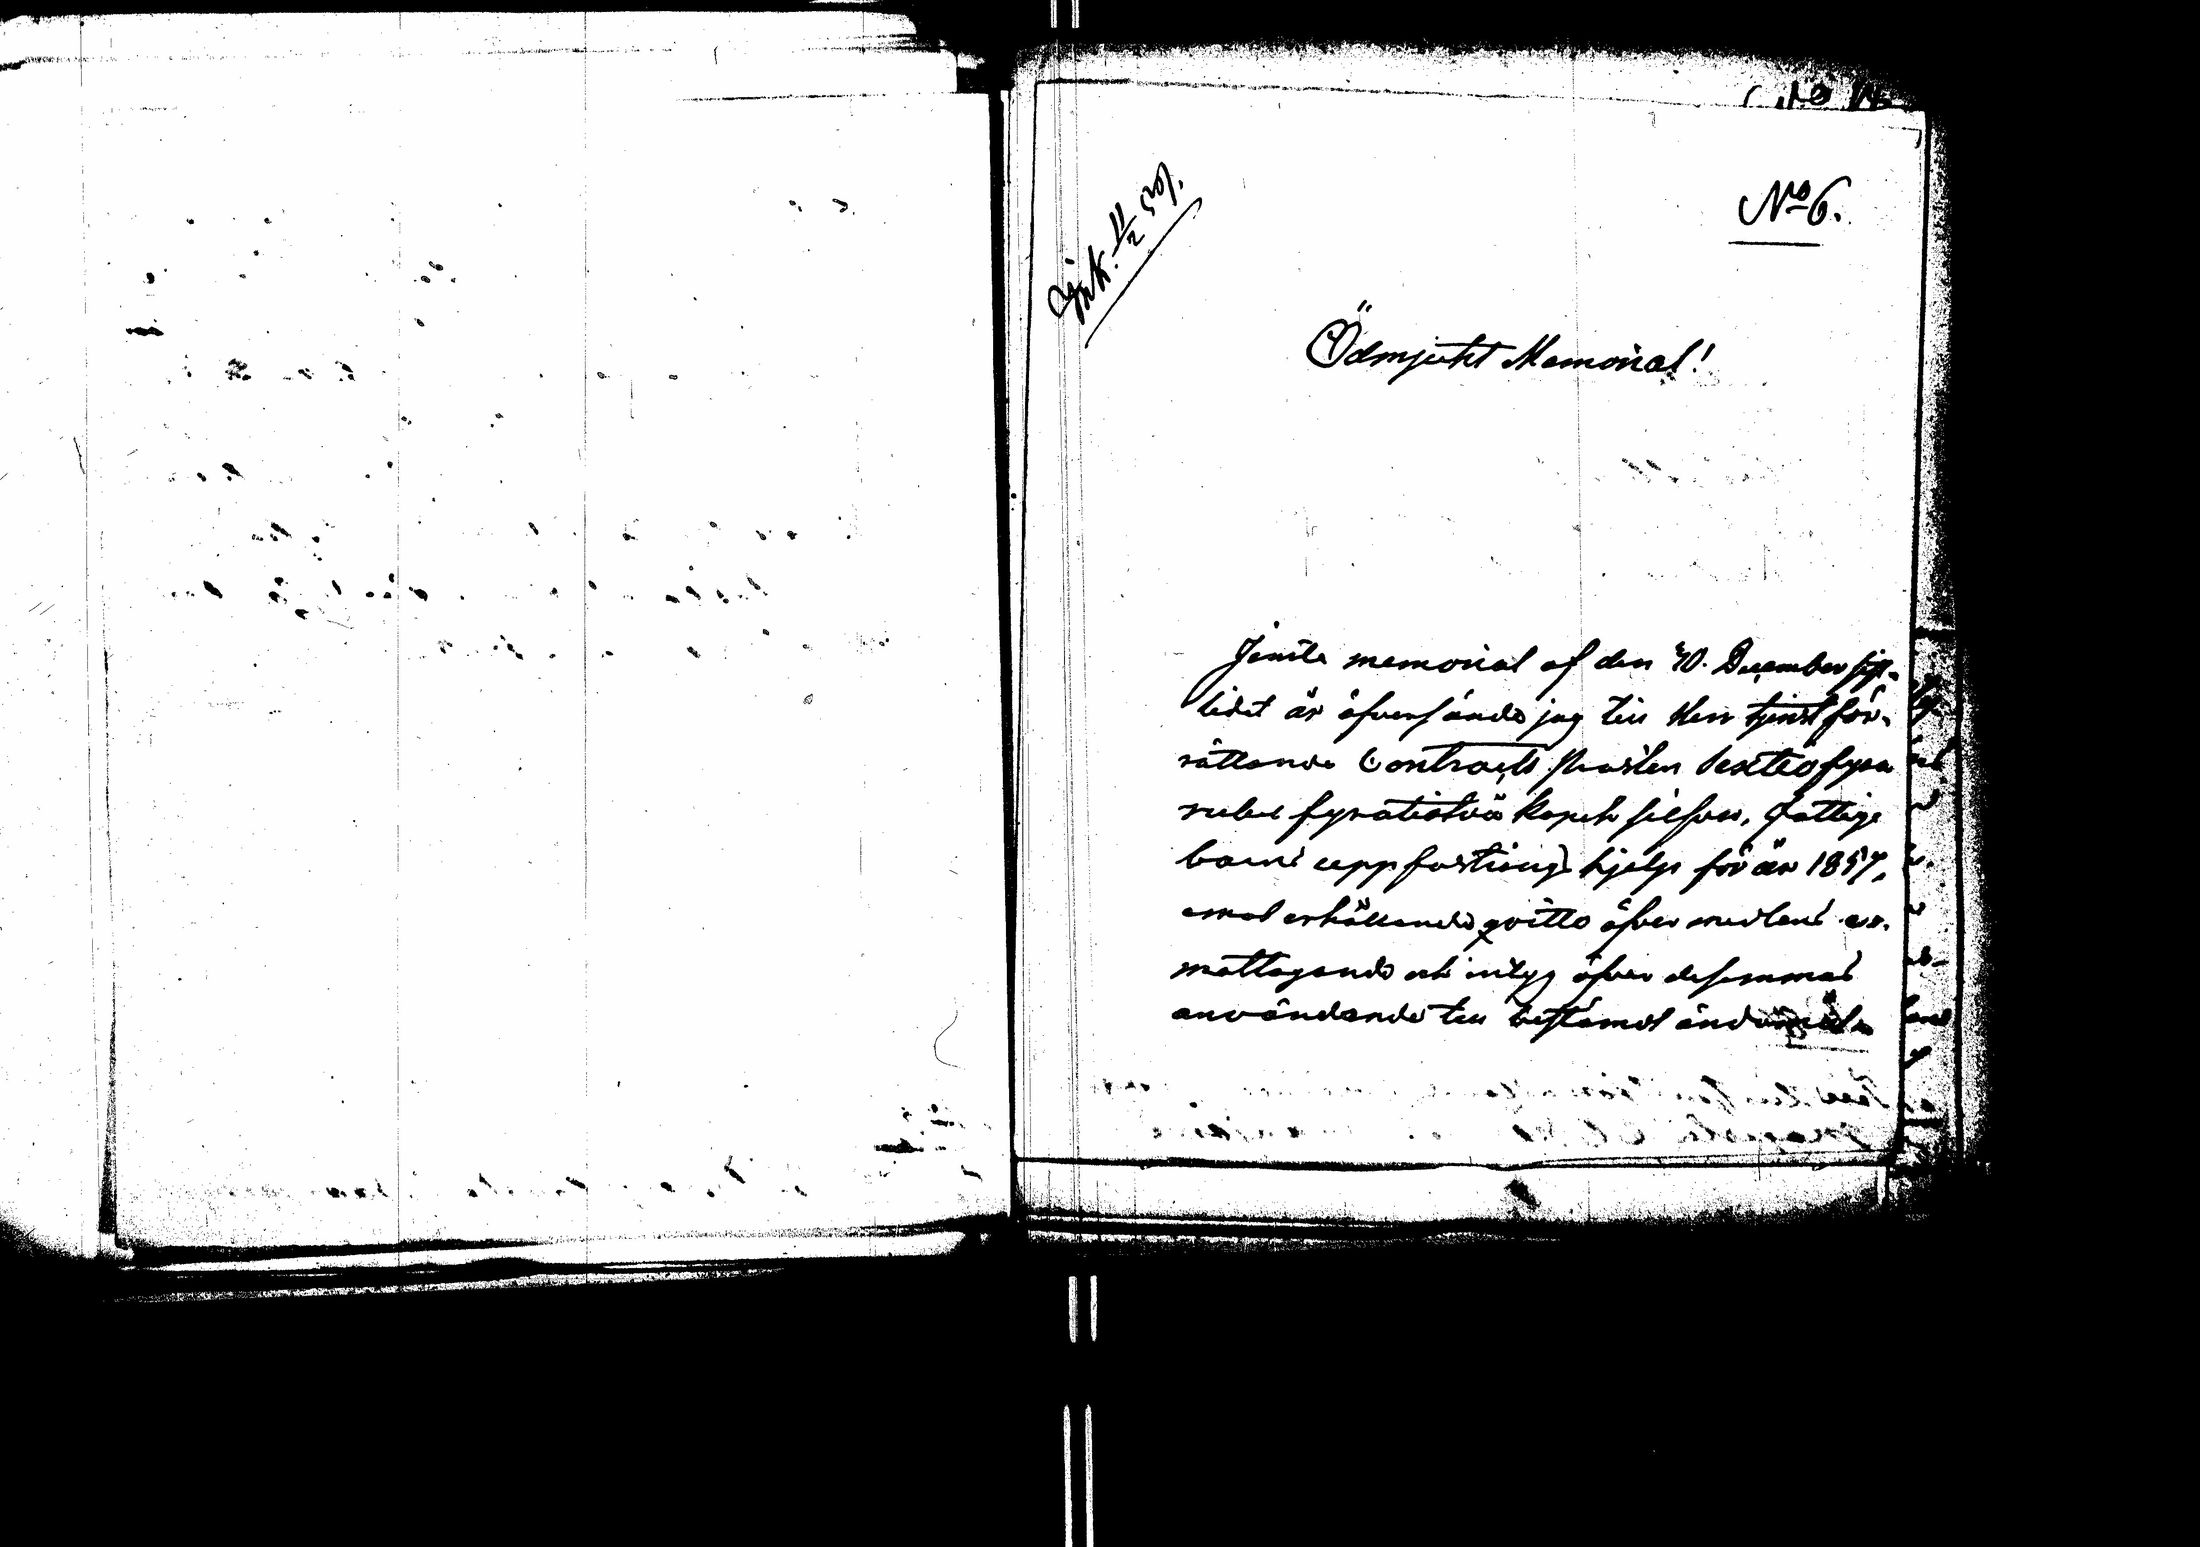 Ink. 11/2 59.
No 6.
Ödmjukt Memorial!
Jemte memorial af den 30. December sist-
lidet år öfversände jag till Herr tjenstför-
rättande Contracts Prosten sextiofyra
rubel fyratiotvå kopek silfver, fattige
barns uppfostrings hjelp för år 1857,
emot erhållande qvitto öfver medlens e-
mottagande och intyg öfver desammas
användande till bestämdt ändamål.